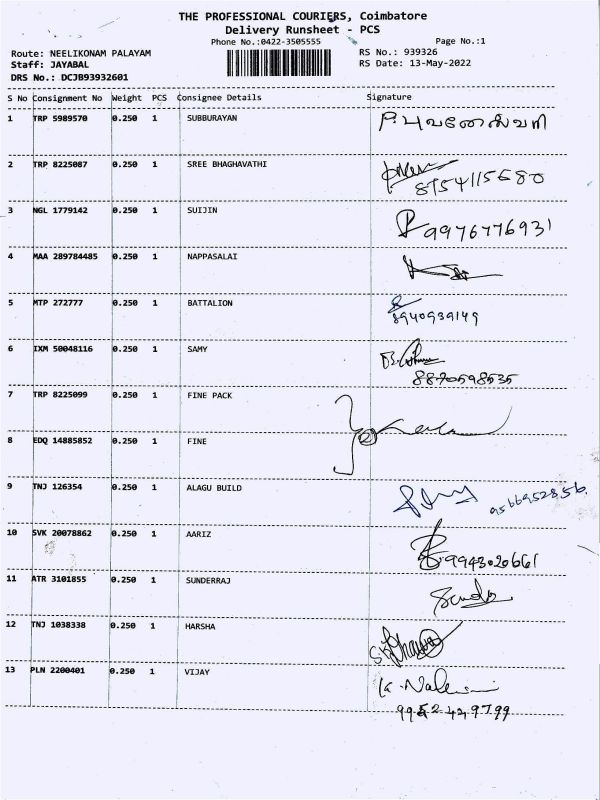 THE PROFESSIONAL COURIERS, Coimbatore
Delivery Runsheet - PCS
Phone No.:0422-3505555 Page No.:1
Route: NEELIKONAM PALAYAM RS No.: 939326
Staff: JAYABAL RS Date: 13-May-2022
DRS No.: DCJB93932601
S No Consignment No Weight PCS Consignee Details Signature
1 TRP 5989570 0.250 1 SUBBURAYAN
2 TRP 8225087 0.250 1 SREE BHAGHAVATHI
8754115680
3 NGL 1779142 0.250 1 SUIJIN
9976776931
4 MAA 289784485 0.250 1 NAPPASALAI
5 MTP 272777 0.250 1 BATTALION
8940939149
6 IXM 50048116 0.250 1 SAMY
8870598535
7 TRP 8225099 0.250 1 FINE PACK
8 EDQ 14885852 0.250 1 FINE
2
9 TNJ 126354 0.250 1 ALAGU BUILD
9566952856.
10 SVK 20078862 0.250 1 AARIZ
9943020661
11 ATR 3101855 0.250 1 SUNDERRAJ
12 TNJ 1038338 0.250 1 HARSHA
13 PLN 2200401 0.250 1 VIJAY
9952429799